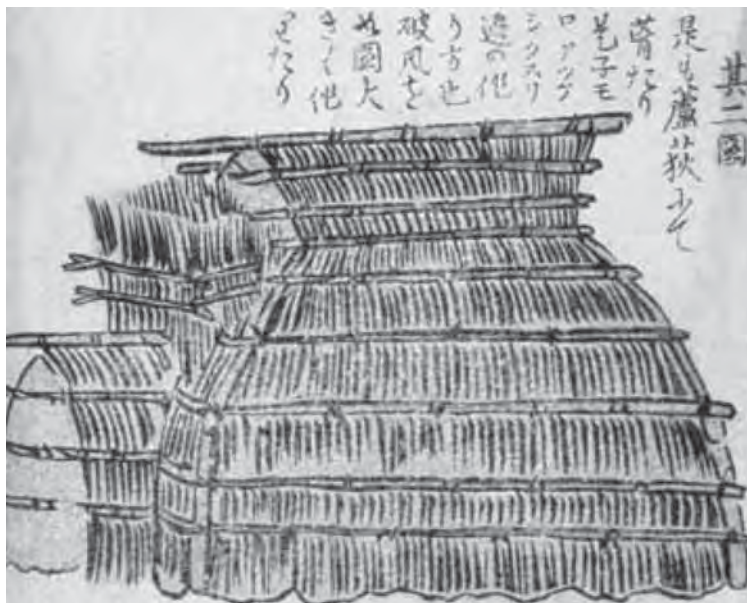 其二圖
是も蘆荻にて
葺たり
是子モ
ロアツケ
シクスリ
邉の作
り方也
破風を
如圖大
きく作
たり